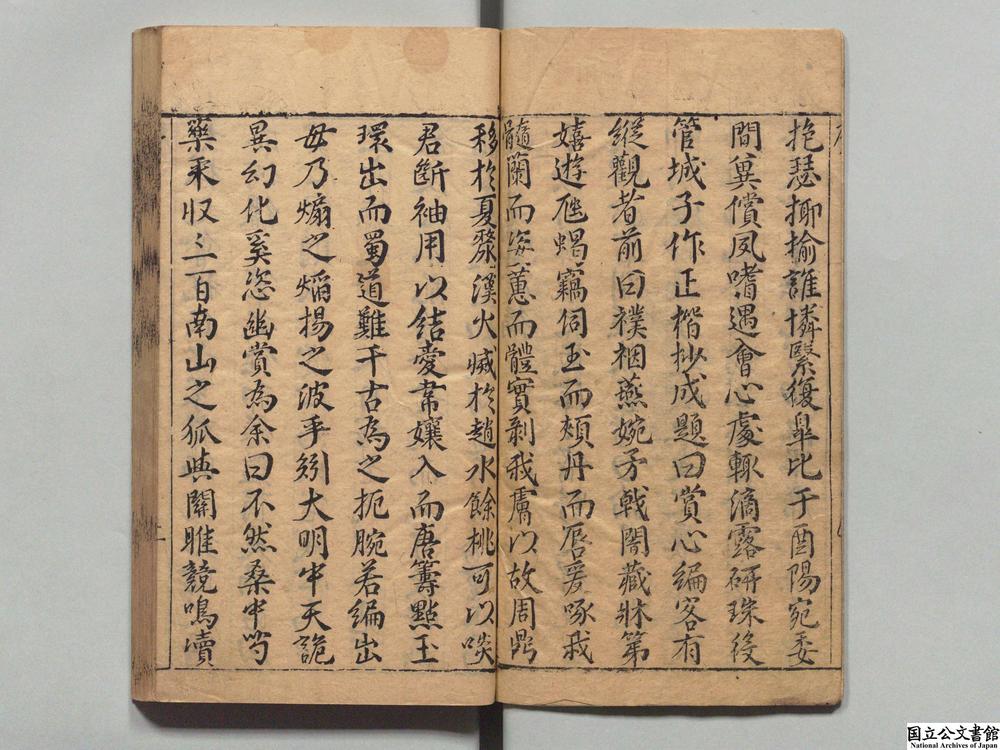 抱瑟揶揄誰憐緊復臯比于酉陽宛委
間冀償夙嗜遇會心處輒滴露研珠後
管城子作正楷抄成題曰賞心編客有
縱觀者前曰襆裀燕婉矛戟闇藏牀第
嬉遊虺蝎竊伺玉而頰丹而唇爰啄我
髓蘭而姿蕙而體實剥我膚以故周鼎
移於夏漦漢火滅於趙水餘桃可以啖
君斷袖用以結愛常孃入而唐籌點玉
環出而蜀道難千古為之扼腕若編出
毋乃煽之焰揚之波乎矧大明中天詭
異幻化奚恣幽賞為余曰不然桑中芍
藥采収三百南山之狐與關雎競鳴瀆
国立公文書館
National Archives of Japan